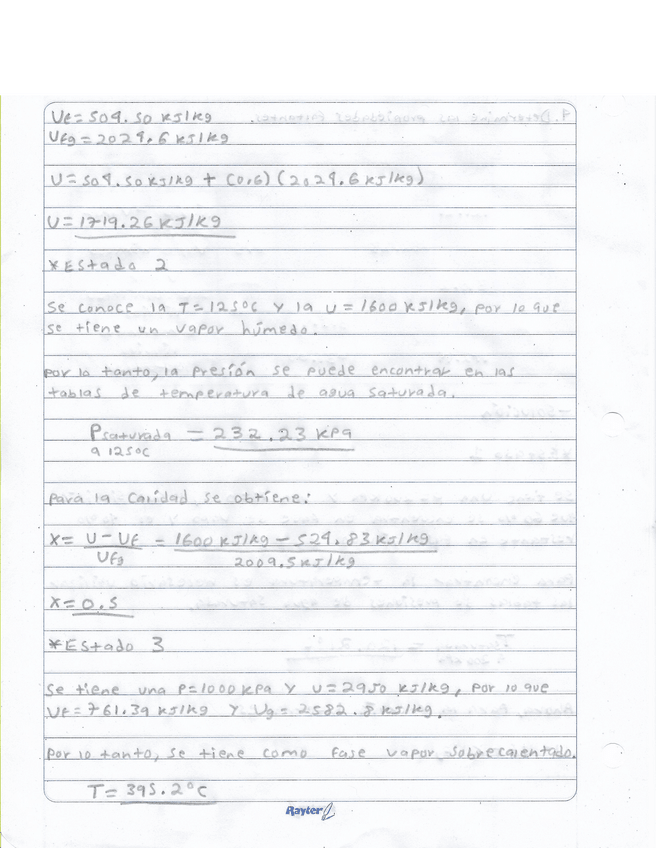 Uf = 504.50 KJ/Kg
Ufg = 2024.6 KJ/Kg
U = 504.50 KJ/Kg + (0.6) (2024.6 KJ/Kg)
U = 1719.26 KJ/Kg
*Estado 2
Se conoce la T=125°C Y la U=1600 KJ/Kg, por lo que
se tiene un vapor húmedo.
Por lo tanto, la presión se puede encontrar en las
tablas de temperatura de agua saturada.
Psaturada = 232.23 KPa
a 125°C
Para la calidad se obtiene:
X = U - Uf = 1600 KJ/Kg - 524.83 KJ/Kg
Ufg 2009.5 KJ/Kg
X = 0.5
*Estado 3
Se tiene una P=1000 KPa Y U=2950 KJ/Kg, por lo que
Uf = 761.39 KJ/Kg Y Ug = 2582.8 KJ/Kg.
Por lo tanto, se tiene como fase vapor sobrecalentado.
T = 395.2°C
Rayter